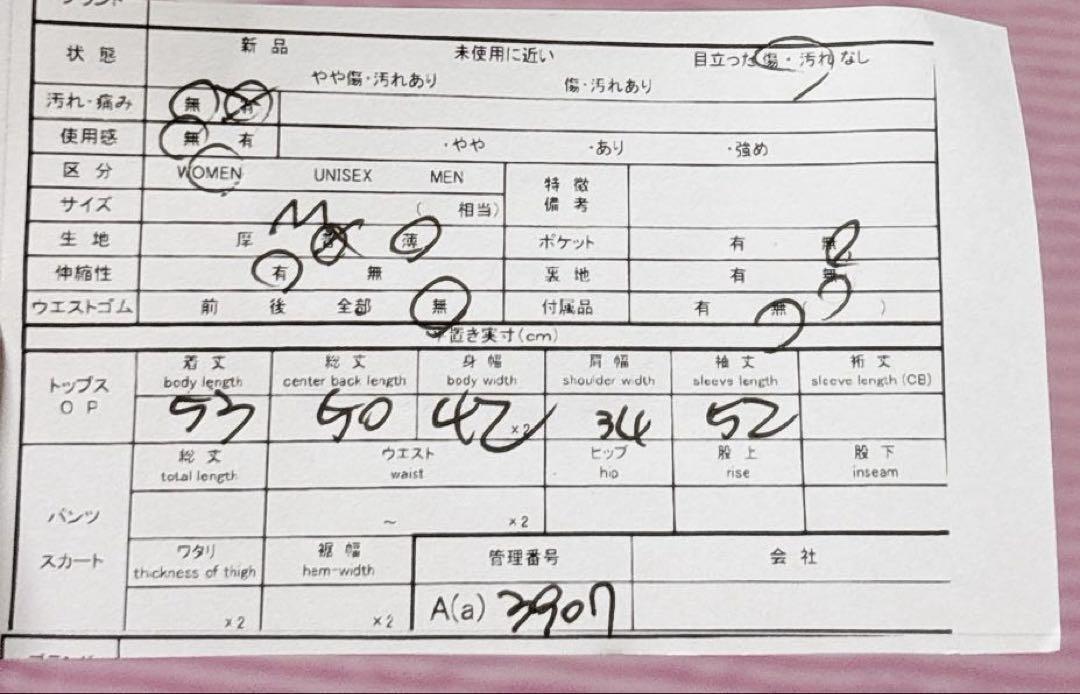 状態 新品 未使用に近い 目立った傷・汚れなし
やや傷・汚れあり 傷・汚れあり
汚れ・痛み 無 有
使用感 無 有 ・やや ・あり ・強め
区分 WOMEN UNISEX MEN 特徴備考
サイズ M ( 相当)
生地 厚 普 薄 ポケット 有 無
伸縮性 有 無 裏地 有 無
ウエストゴム 前 後 全部 無 付属品 有 無 ( )
平置き実寸(cm)
トップス OP 着丈 総丈 身幅 肩幅 袖丈 裄丈
body length center back length body width shoulder width sleeve length sleeve length (CB)
53 50 42 ×2 34 52
パンツ スカート 総丈 ウエスト ヒップ 股上 股下
total length waist hip rise inseam
~ ×2
ワタリ 裾幅 管理番号 会社
thickness of thigh hem-width
×2 ×2 A(a) 3907